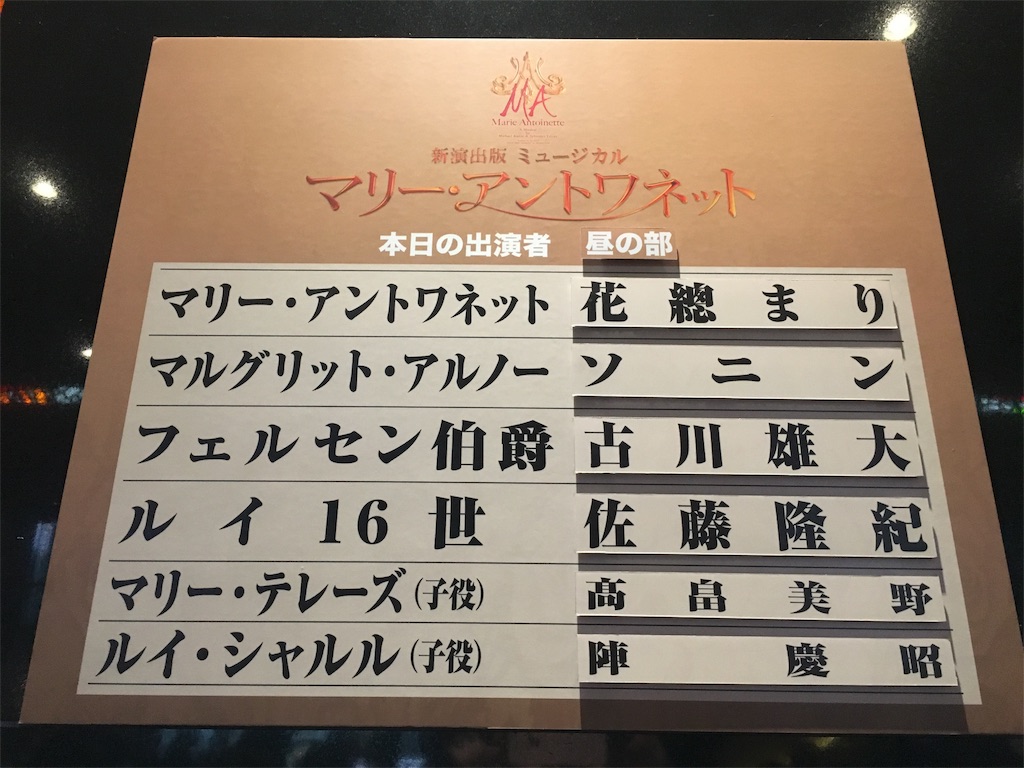 MA
Marie Antoinette
新演出版 ミュージカル
マリー・アントワネット
本日の出演者 昼の部
マリー・アントワネット 花總まり
マルグリット・アルノー ソニン
フェルセン伯爵 古川雄大
ルイ16世 佐藤隆紀
マリー・テレーズ(子役) 髙畠美野
ルイ・シャルル(子役) 陣慶昭